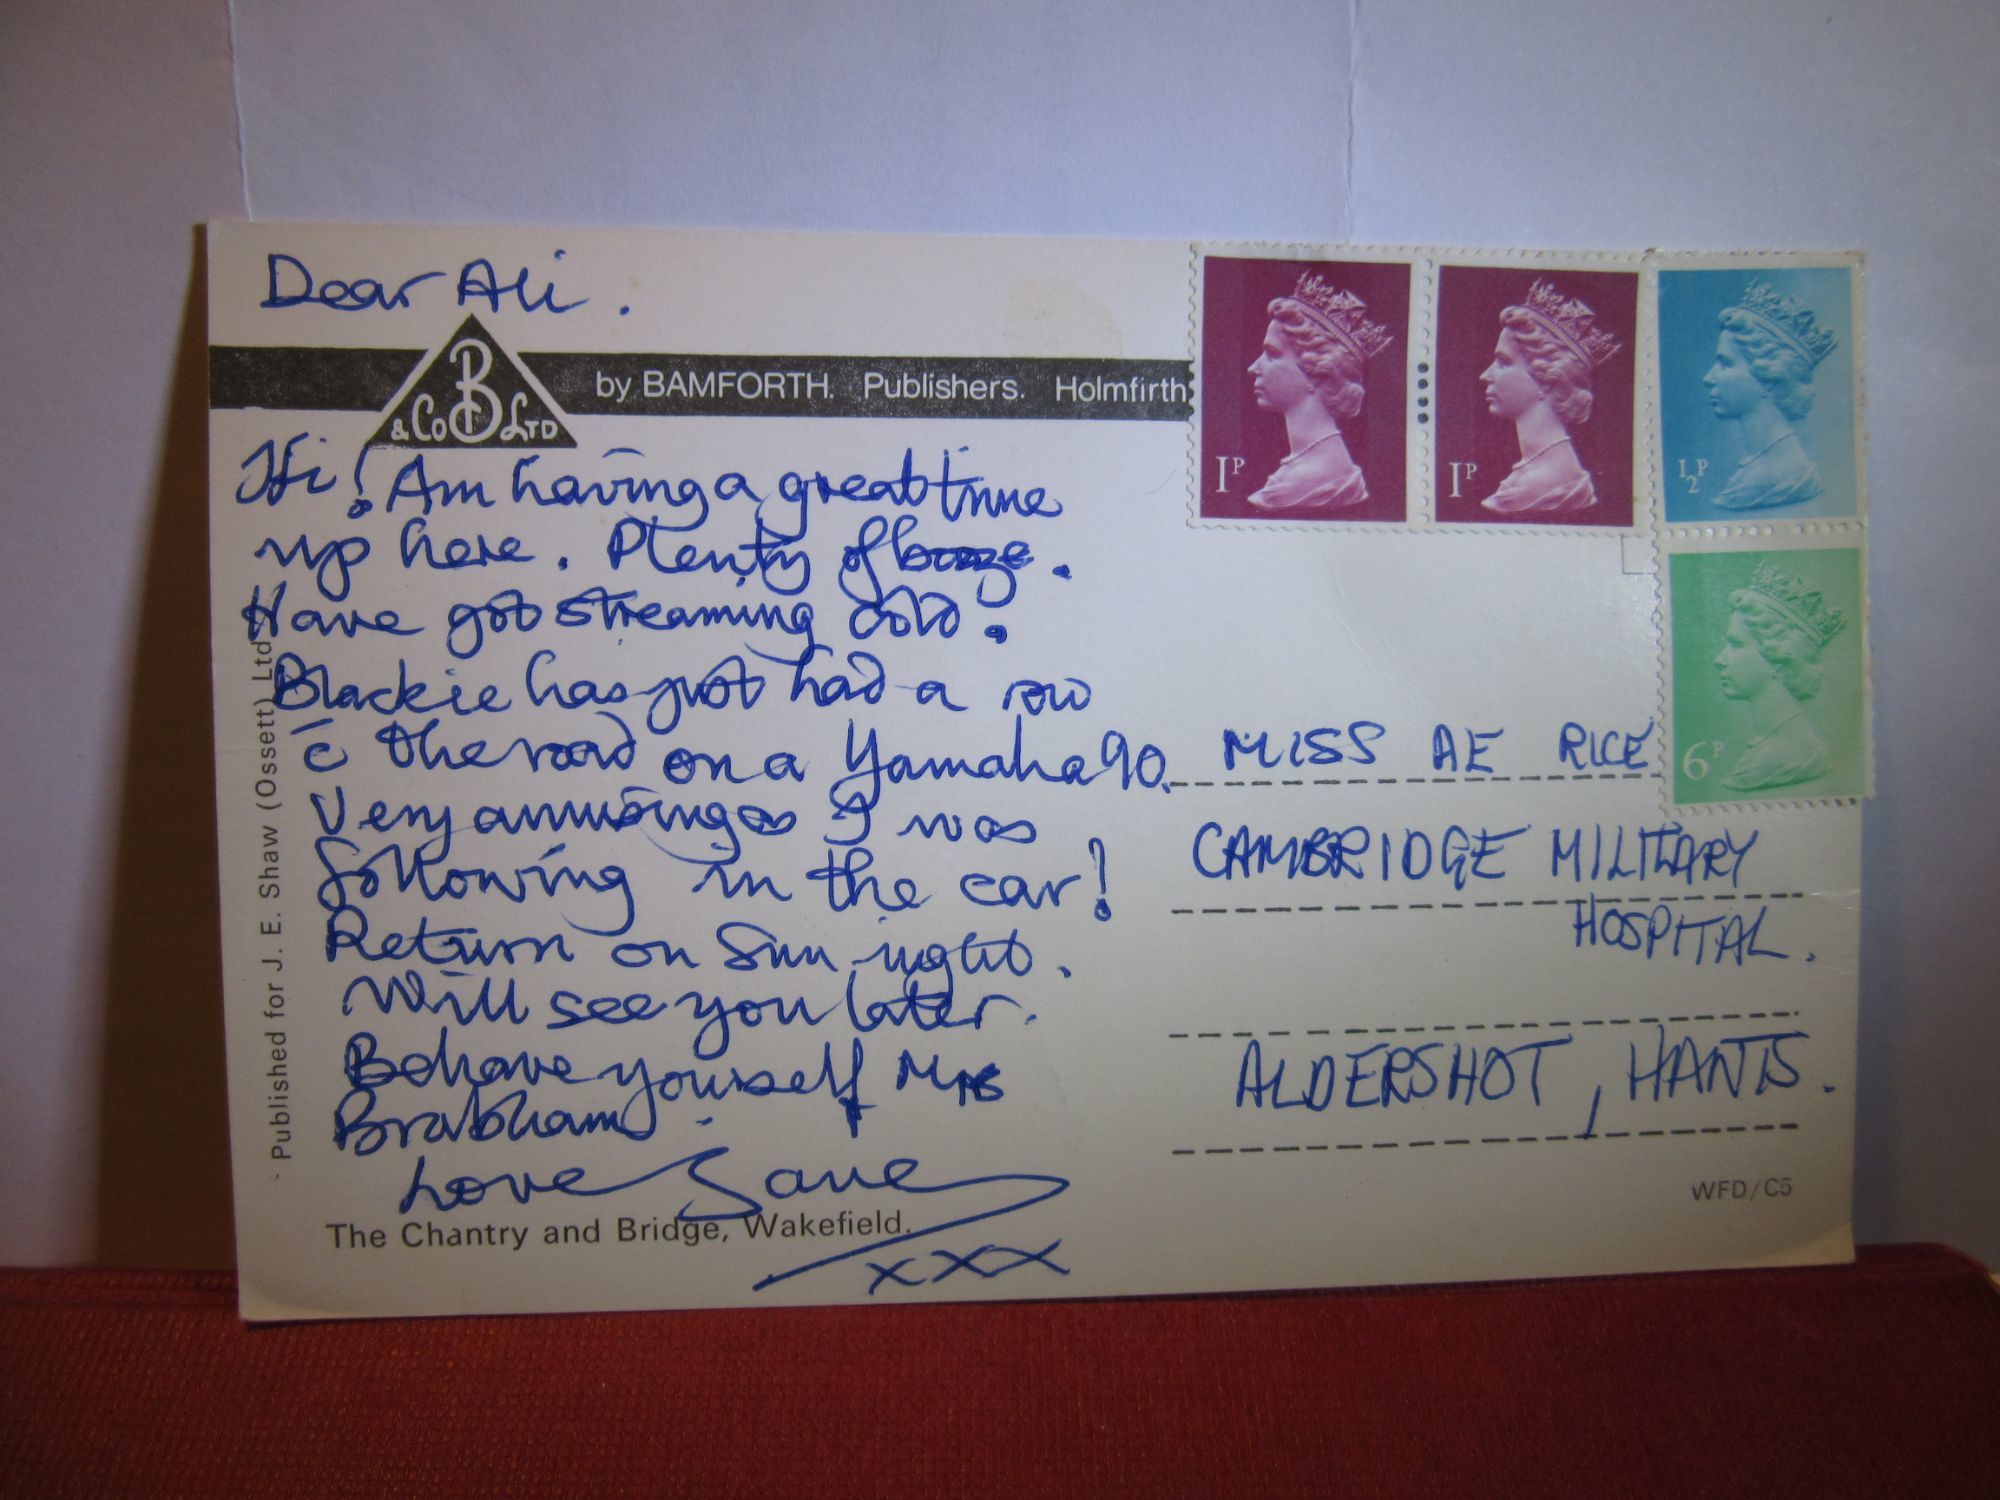 Dear Ali.
B & Co LTD
by BAMFORTH. Publishers. Holmfirth
Hi! Am having a great time
up here. Plenty of booze.
Have got streaming cold.
Blackie has just had a row
c̄ the road on a Yamaha 90.
Very amusing as I was
following in the car!
Return on Sun night.
Will see you later.
Behave yourself Mrs
Brabham!
Love
xxx
Published for J. E. Shaw (Ossett) Ltd
The Chantry and Bridge, Wakefield.
1P
1P
½P
6P
MISS AE RICE
CAMBRIDGE MILITARY
HOSPITAL.
ALDERSHOT, HANTS.
WFD/C5